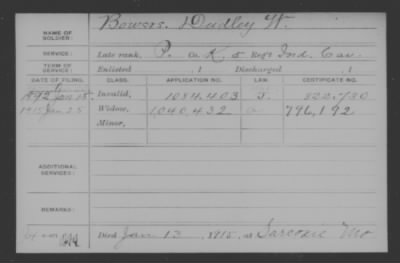 NAME OF SOLDIER: Bowers. Dudley W.
SERVICE: Late rank, P. Co. K, 5 Reg't Ind. Cav
TERM OF SERVICE: Enlisted , 1 Discharged , 1
DATE OF FILING. CLASS. APPLICATION NO. LAW. CERTIFICATE NO.
1892 Invalid, 1084.403 J. 822.730
1915 Jan 25 Widow, 1,040,432 796,192
Minor,
ADDITIONAL SERVICES:
REMARKS:
Died Jan 13, 1915, at Sarcoxie Mo